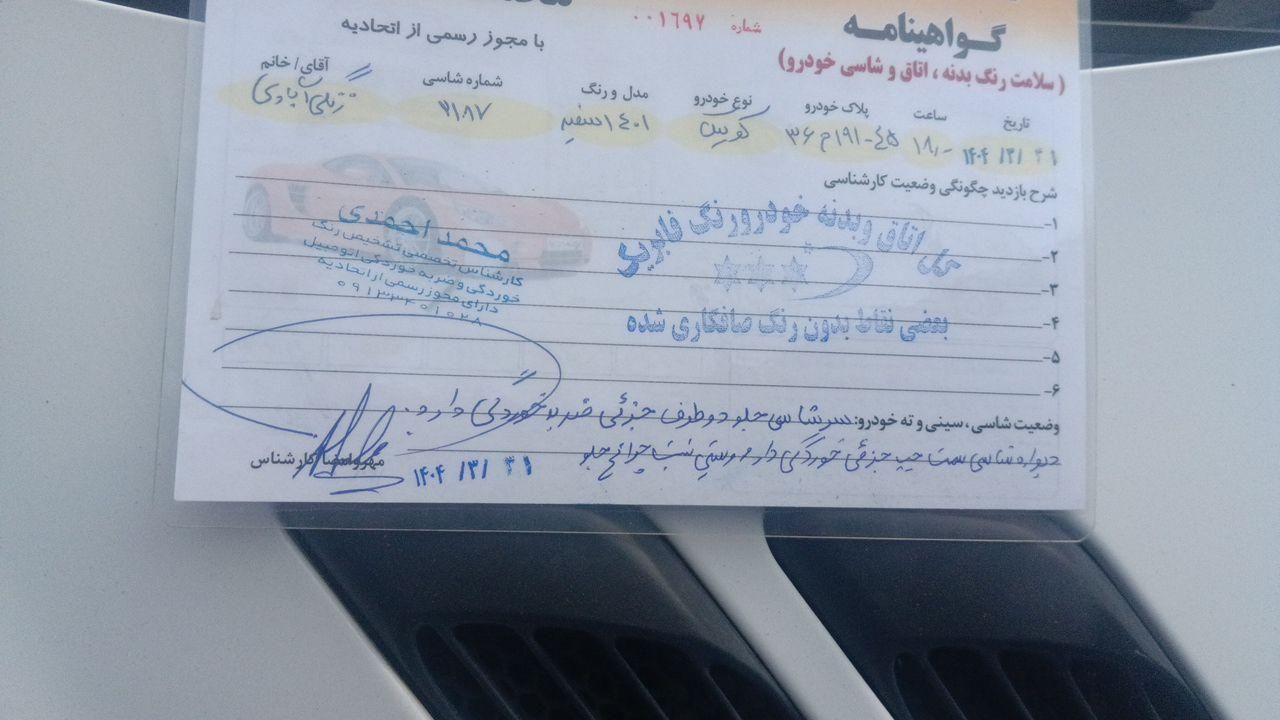 گواهینامه
شماره ۰۰۱۶۹۷
با مجوز رسمی از اتحادیه
( سلامت رنگ بدنه ، اتاق و شاسی خودرو)
تاریخ ساعت پلاک خودرو نوع خودرو مدل و رنگ شماره شاسی آقای/ خانم
۱۴۰۴/۳/۳۱ ۱۸٫۰۰ ۴۵-۱۹۱م۳۶ کوییک ۱۴۰۱سفید ۳۱۸۷
شرح بازدید چگونگی وضعیت کارشناسی
۱-
۲-
۳-
۴-
۵-
۶-
اتاق وبدنه خودرورنگ فابریک
بعضی نقاط بدون رنگ صافکاری شده
محمد احمدی
کارشناس تخصصی تشخیص رنگ
خوردگی و ضربه خوردگی اتومبیل
دارای مجوز رسمی از اتحادیه
۰۹۱۳۳۴۰۱۰۲۸
وضعیت شاسی ، سینی و ته خودرو: سرشاسی جلو دو طرف جزئی ضربه خوردگی دارد.
دیواره شاسی سمت چپ جزئی خوردگی دارد پشت چراغ جلو
مهر و امضا کارشناس
۱۴۰۴/۳/۳۱